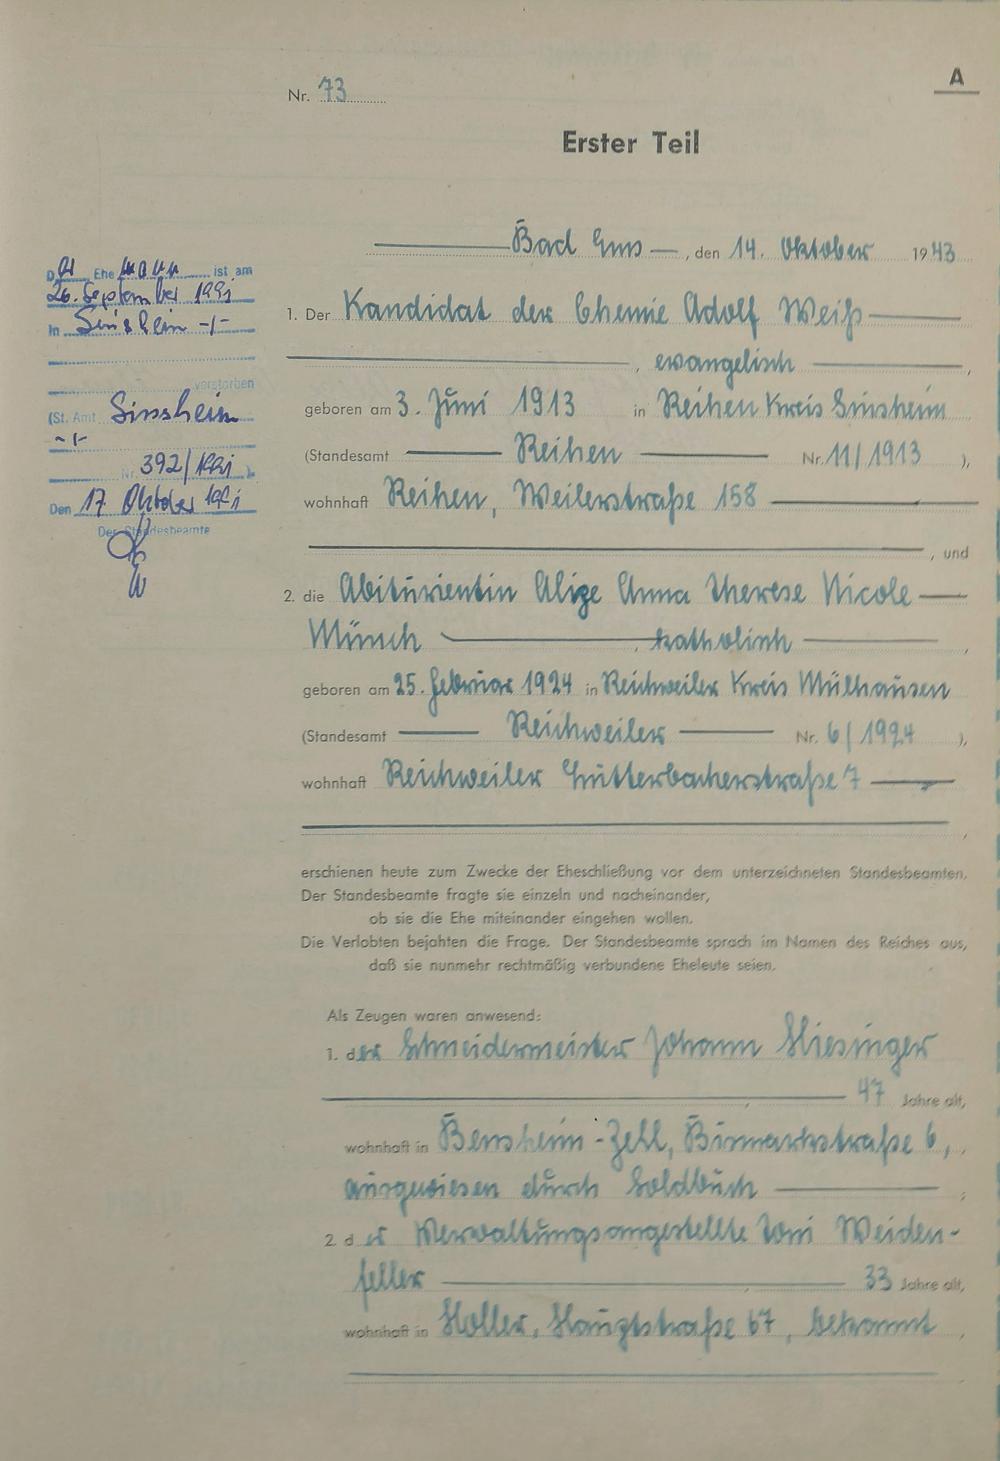 A
Nr. 73
Erster Teil
Bad Ems, den 14. Oktober 1943
1. Der Kandidat der Chemie Adolf Weiß
, evangelisch,
geboren am 3. Juni 1913 in Reihen Kreis Sinsheim
(Standesamt Reihen Nr. 11/1913),
wohnhaft Reihen, Weilerstraße 158
, und
2. die Abiturientin Alize Anna Therese Nicole
Münch, katholisch,
geboren am 25. Februar 1924 in Reichweiler Kreis Mülhausen
(Standesamt Reichweiler Nr. 6/1924),
wohnhaft Reichweiler Lutterbacherstraße 7
,
erschienen heute zum Zwecke der Eheschließung vor dem unterzeichneten Standesbeamten.
Der Standesbeamte fragte sie einzeln und nacheinander,
ob sie die Ehe miteinander eingehen wollen.
Die Verlobten bejahten die Frage. Der Standesbeamte sprach im Namen des Reiches aus,
daß sie nunmehr rechtmäßig verbundene Eheleute seien.
Als Zeugen waren anwesend:
1. der Schneidermeister Johann
47 Jahre alt,
wohnhaft in Bensheim-Zell, Bismarckstraße 6,
ausgewiesen durch Soldbuch ;
2. der Verwaltungsangestellte Toni Weiden-
feller, 33 Jahre alt,
wohnhaft in Holler, Hauptstraße 67, bekannt,
Der Ehemann ist am
26. September 1991
in Sinsheim -/-
verstorben
(St. Amt Sinsheim
-/-
Nr. 392/1991).
Den 17. Oktober 1991
Der Standesbeamte